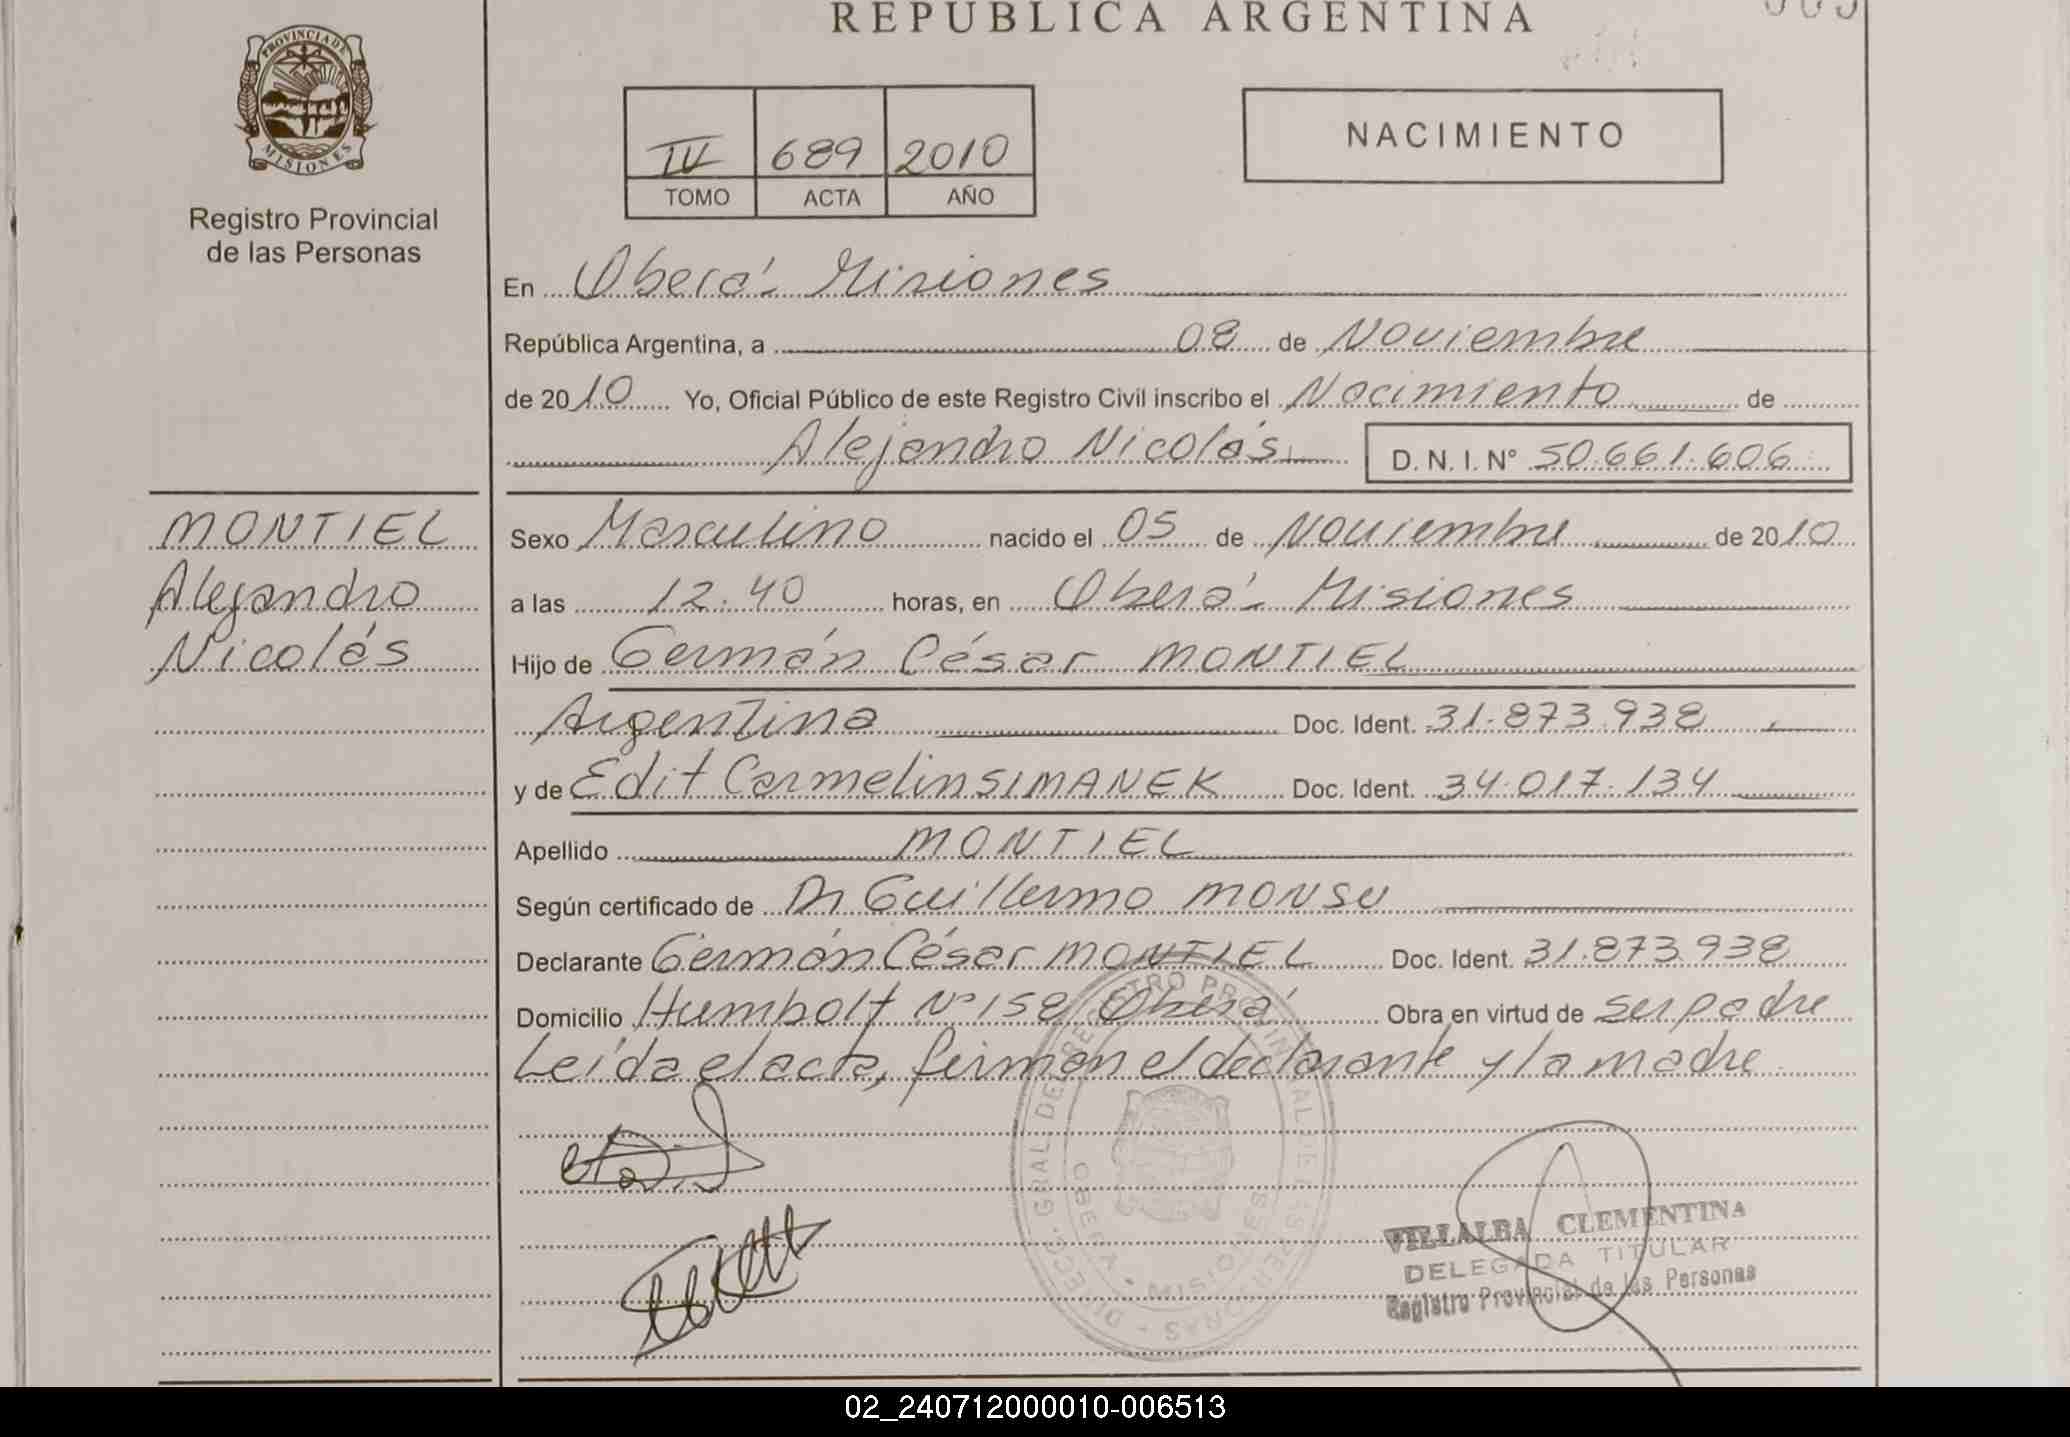 REPUBLICA ARGENTINA
PROVINCIA DE
MISIONES
Registro Provincial
de las Personas
IV 689 2010
TOMO ACTA AÑO
NACIMIENTO
En Oberá - Misiones
República Argentina, a 08 de Noviembre
de 2010 Yo, Oficial Público de este Registro Civil inscribo el Nacimiento de
Alejandro Nicolás D. N. I. N° 50.661.606
MONTIEL
Alejandro
Nicolás
Sexo Masculino nacido el 05 de Noviembre de 2010
a las 12.40 horas, en Oberá - Misiones
Hijo de Germán César MONTIEL
Argentina Doc. Ident. 31.873.938
y de Edit Carmelin SIMANEK Doc. Ident. 34.017.134
Apellido MONTIEL
Según certificado de Dr Guillermo MONSU
Declarante Germán César MONTIEL Doc. Ident. 31.873.938
Domicilio Humbolt N° 158 Oberá Obra en virtud de ser padre
Leída el acta, firman el declarante y la madre
DIREC. GRAL DEL REGISTRO PROVINCIAL DE LAS PERSONAS
OBERA - MISIONES
VILLALBA CLEMENTINA
DELEGADA TITULAR
Registro Provincial de las Personas
02_240712000010-006513